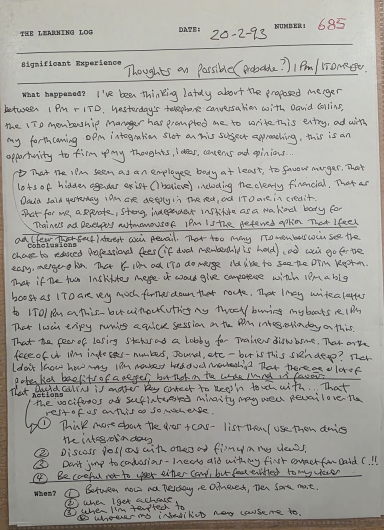 THE LEARNING LOG DATE: 20-2-93 NUMBER: 685
Significant Experience
Thoughts on possible (probable?) IPM/ITD Merger.
What happened? I've been thinking lately about the proposed merger
between IPM & ITD. Yesterday's telephone conversation with David Collins,
the ITD membership Manager has prompted me to write this entry, and with
my forthcoming OPM integration slot on this subject approaching, this is an
opportunity to firm up my thoughts, ideas, concerns and opinions...
That the IPM seen as an employee body at least, to favour merger. That
lots of hidden agendas exist (I believe) including the clearly financial. That as
David said yesterday IPM are deeply in the red, and ITD are in credit.
That for me, a separate, strong, independent Institute as a national body for
Trainers and Developers autonomous of IPM is the preferred option. That I feel
and (fear that) self interest will prevail. That too many ITD members will see the
Conclusions
chance to reduced professional fees (if dual membership is held), and will go for the
easy, merger option. That if IPM and ITD do merge I'd like to see the
That if the two Institutes merge it would give competence within IPM a big
boost as ITD are very much further down that route. That I may write a letter
to ITD/IPM on this - but without cutting my throat/burning my boats re IPM
That I will enjoy running a quick session on the OPM integration day on this.
That the fear of losing status and a lobby for Trainers disturbs me. That on the
face of it IPM impresses - numbers, journal, etc - but is this skin deep? That
I don't know how many IPM members
That David Collins is another key contact to keep in touch with... That
Actions
the vociferous and self interested minority may even prevail over the
rest of us on this as so much else.
① Think more about the pros + cons - list them/use them during
the integration day
② Discuss pros/cons with others and firm up my views.
③ Don't jump to conclusions - I needs did with my first contact from David C!!
④ Be careful not to upset either camp, but feel entitled to my views
When? ① Between now and Tuesday re Different, then some more.
② When I get a chance
③ When I'm tempted to
④ Whenever my may cause me to.